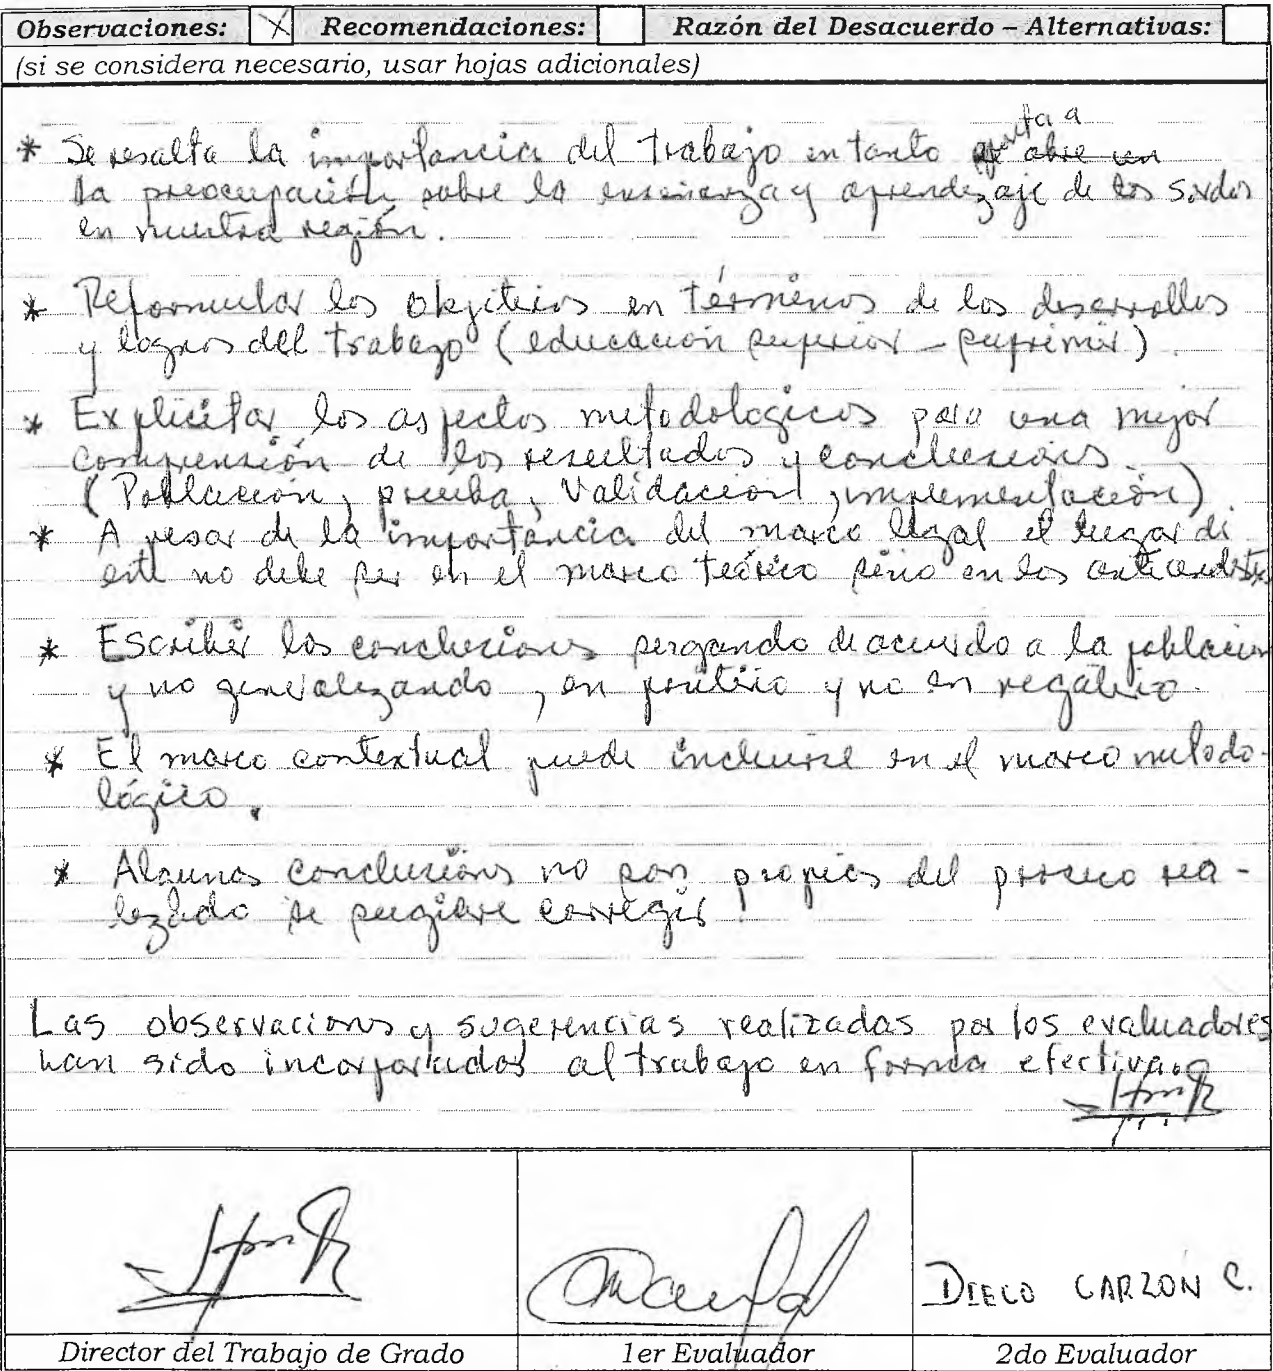 Observaciones: X Recomendaciones: Razón del Desacuerdo – Alternativas:
(si se considera necesario, usar hojas adicionales)
* Se resalta la importancia del trabajo en tanto abre un
la preocupación sobre la enseñanza y aprendizaje de los sordos
en nuestra región.
* Reformular los objetivos en términos de los desarrollos
y logros del trabajo (educación superior – suprimir).
* Explicitar los aspectos metodologicos para una mejor
comprensión de los resultados y conclusiones.
(Población, prueba, Validación, implementación)
* A pesar de la importancia del marco legal el lugar de
este no debe ser en el marco teórico sino en los antecedentes
* Escribir las conclusiones de acuerdo a la población
y no generalizando, en positivo y no en negativo.
* El marco contextual puede incluirse en el marco metodo-
lógico.
* Algunas conclusiones no son propias del proceso rea-
lizado se sugiere corregir.
Las observaciones y sugerencias realizadas por los evaluadores
han sido incorporadas al trabajo en forma efectiva.
DIEGO GARZON C.
Director del Trabajo de Grado 1er Evaluador 2do Evaluador